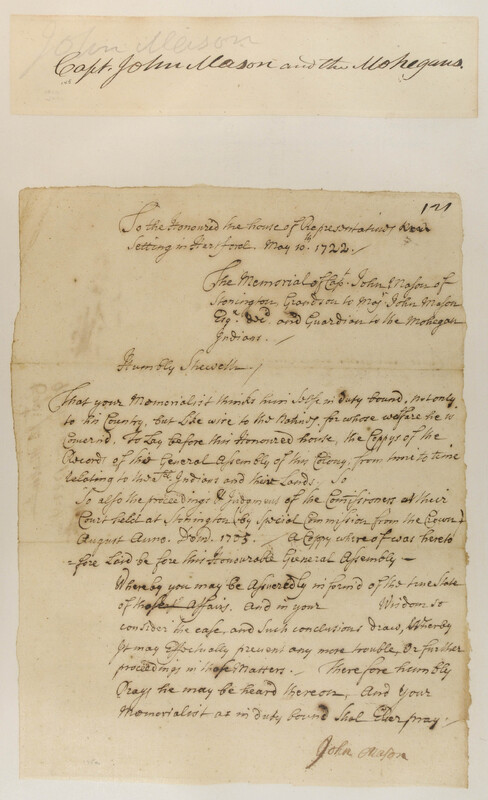 John Mason
Capt. John Mason and the Mohegans.
121
To the Honoured the house of Representatives
Setting in Hertford. May 10th. 1722. /
The Memorial of Capt. John Mason of
Stonington, Grandson to Maj. John Mason
Esqr. Decd. and Guardian to the Mohegan
Indians. /
Humbly Sheweth /
That your Memorialist thinks him Selfe in duty bound, not only
to his Country, but Like wise to the Natives, for whose welfare he is
Concernd. To Lay before this Honoured house, the Coppys of the
Records of the General Assembly of this Colony, from time to time
Relating to the Indians and their Lands. So
So also the proceedings & Judgment of the Comissioners at their
Court held at Stonington (by Special Commission from the Crown)
August Anno. Dom. 1705. / A Coppy where of was hereto
=fore Laid be fore this Honourable General Assembly —
Whereby you may be Assuredly informd of the true State
of those Affairs. And in your Wisdom so
consider the case, and Such conclusions draw, Whereby
It may Effectually prevent any more trouble, Or further
proceedings in those Matters. / Therefore humbly
Prays he may be heard thereon, And Your
Memorialist as in duty bound Shal Ever pray. /
John Mason